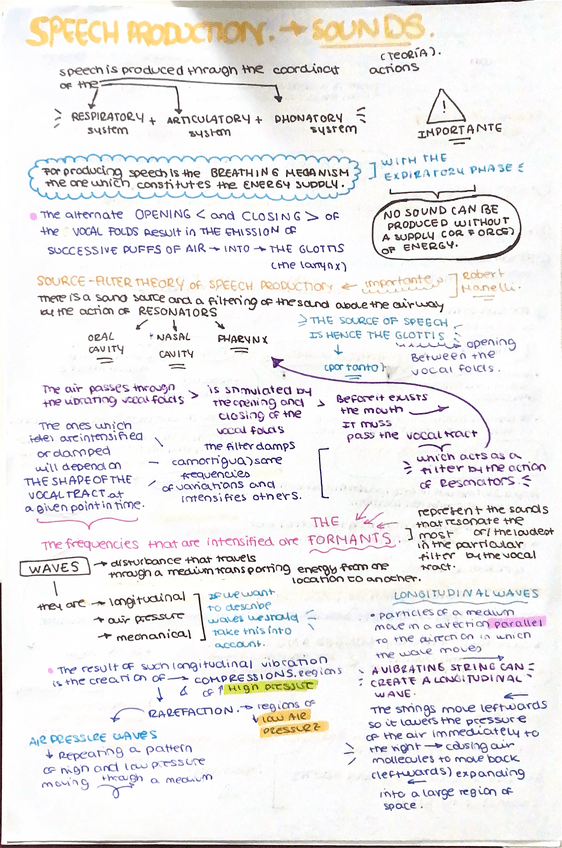 SPEECH PRODUCTION. → SOUNDS.
(TEORÍA).
speech is produced through the coordinat actions
of the
RESPIRATORY system + ARTICULATORY system + PHONATORY system
IMPORTANTE
For producing speech is the BREATHING MECANISM
the one which constitutes the ENERGY SUPPLY.
WITH THE
EXPIRATORY PHASE
NO SOUND CAN BE
PRODUCED WITHOUT
A SUPPLY (OR FORCE)
OF ENERGY.
• The alternate OPENING < and CLOSING > OF
the VOCAL FOLDS RESULT IN THE EMISSION OF
SUCCESSIVE PUFFS OF AIR → INTO → THE GLOTTIS
(the larynx)
SOURCE-FILTER THEORY OF SPEECH PRODUCTION ← importante
Robert
There is a sound source and a filtering of the sound above the airway
by the action of RESONATORS
ORAL
CAVITY
NASAL
CAVITY
PHARYNX
THE SOURCE OF SPEECH
IS HENCE THE GLOTTIS
opening
Between the
vocal folds.
(por tanto)
The air passes through
the vibrating vocal folds >
is stimulated by
the opening and
closing of the
vocal folds >
Before it exists
the mouth
it muss
pass the vocal tract
which acts as a
filter by the action
of Resonators.
The ones which
are intensified
or damped
will depend on
THE SHAPE OF THE
VOCAL TRACT at
a given point in time.
The filter damps
(amortigua) some
frequencies
of variations and
intensifies others.
The frequencies that are intensified are THE FORMANTS.
represent the sounds
that resonate the
most or/the loudest
in the particular
filter by the vocal
tract.
WAVES → disturbance that travels
through a medium transporting energy from one
location to another.
they are → longitudinal
→ air pressure
→ mechanical
If we want
to describe
waves we should
take this into
account.
LONGITUDINAL WAVES
• Particles of a medium
move in a direction parallel
to the direction in which
the wave moves
• The result of such longitudinal vibration
is the creation of → COMPRESSIONS. regions
of ↑ HIGH PRESSURE
& RAREFACTION. → regions of
↓ LOW AIR
PRESSURE
A VIBRATING STRING CAN
CREATE A LONGITUDINAL
WAVE.
The strings move leftwards
so it lowers the pressure
of the air immediately to
the right → causing air
molecules to move back
(leftwards) expanding
into a large region of
space.
AIR PRESSURE WAVES
↓ Repeating a pattern
of high and low pressure
moving through a medium